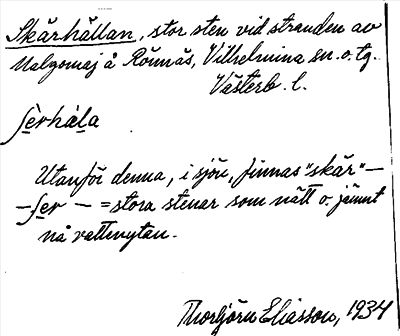 Skärhällan, stor sten vid stranden av
Malgomaj å Rönnäs, Vilhelmina sn. o. tg.
Västerb. l.
ʃèrhàla
Utanför denna, i sjön, finnas "skär" —
— ʃer — = stora stenar som nätt o. jämnt
nå vattenytan.
Thorbjörn Eliasson, 1934